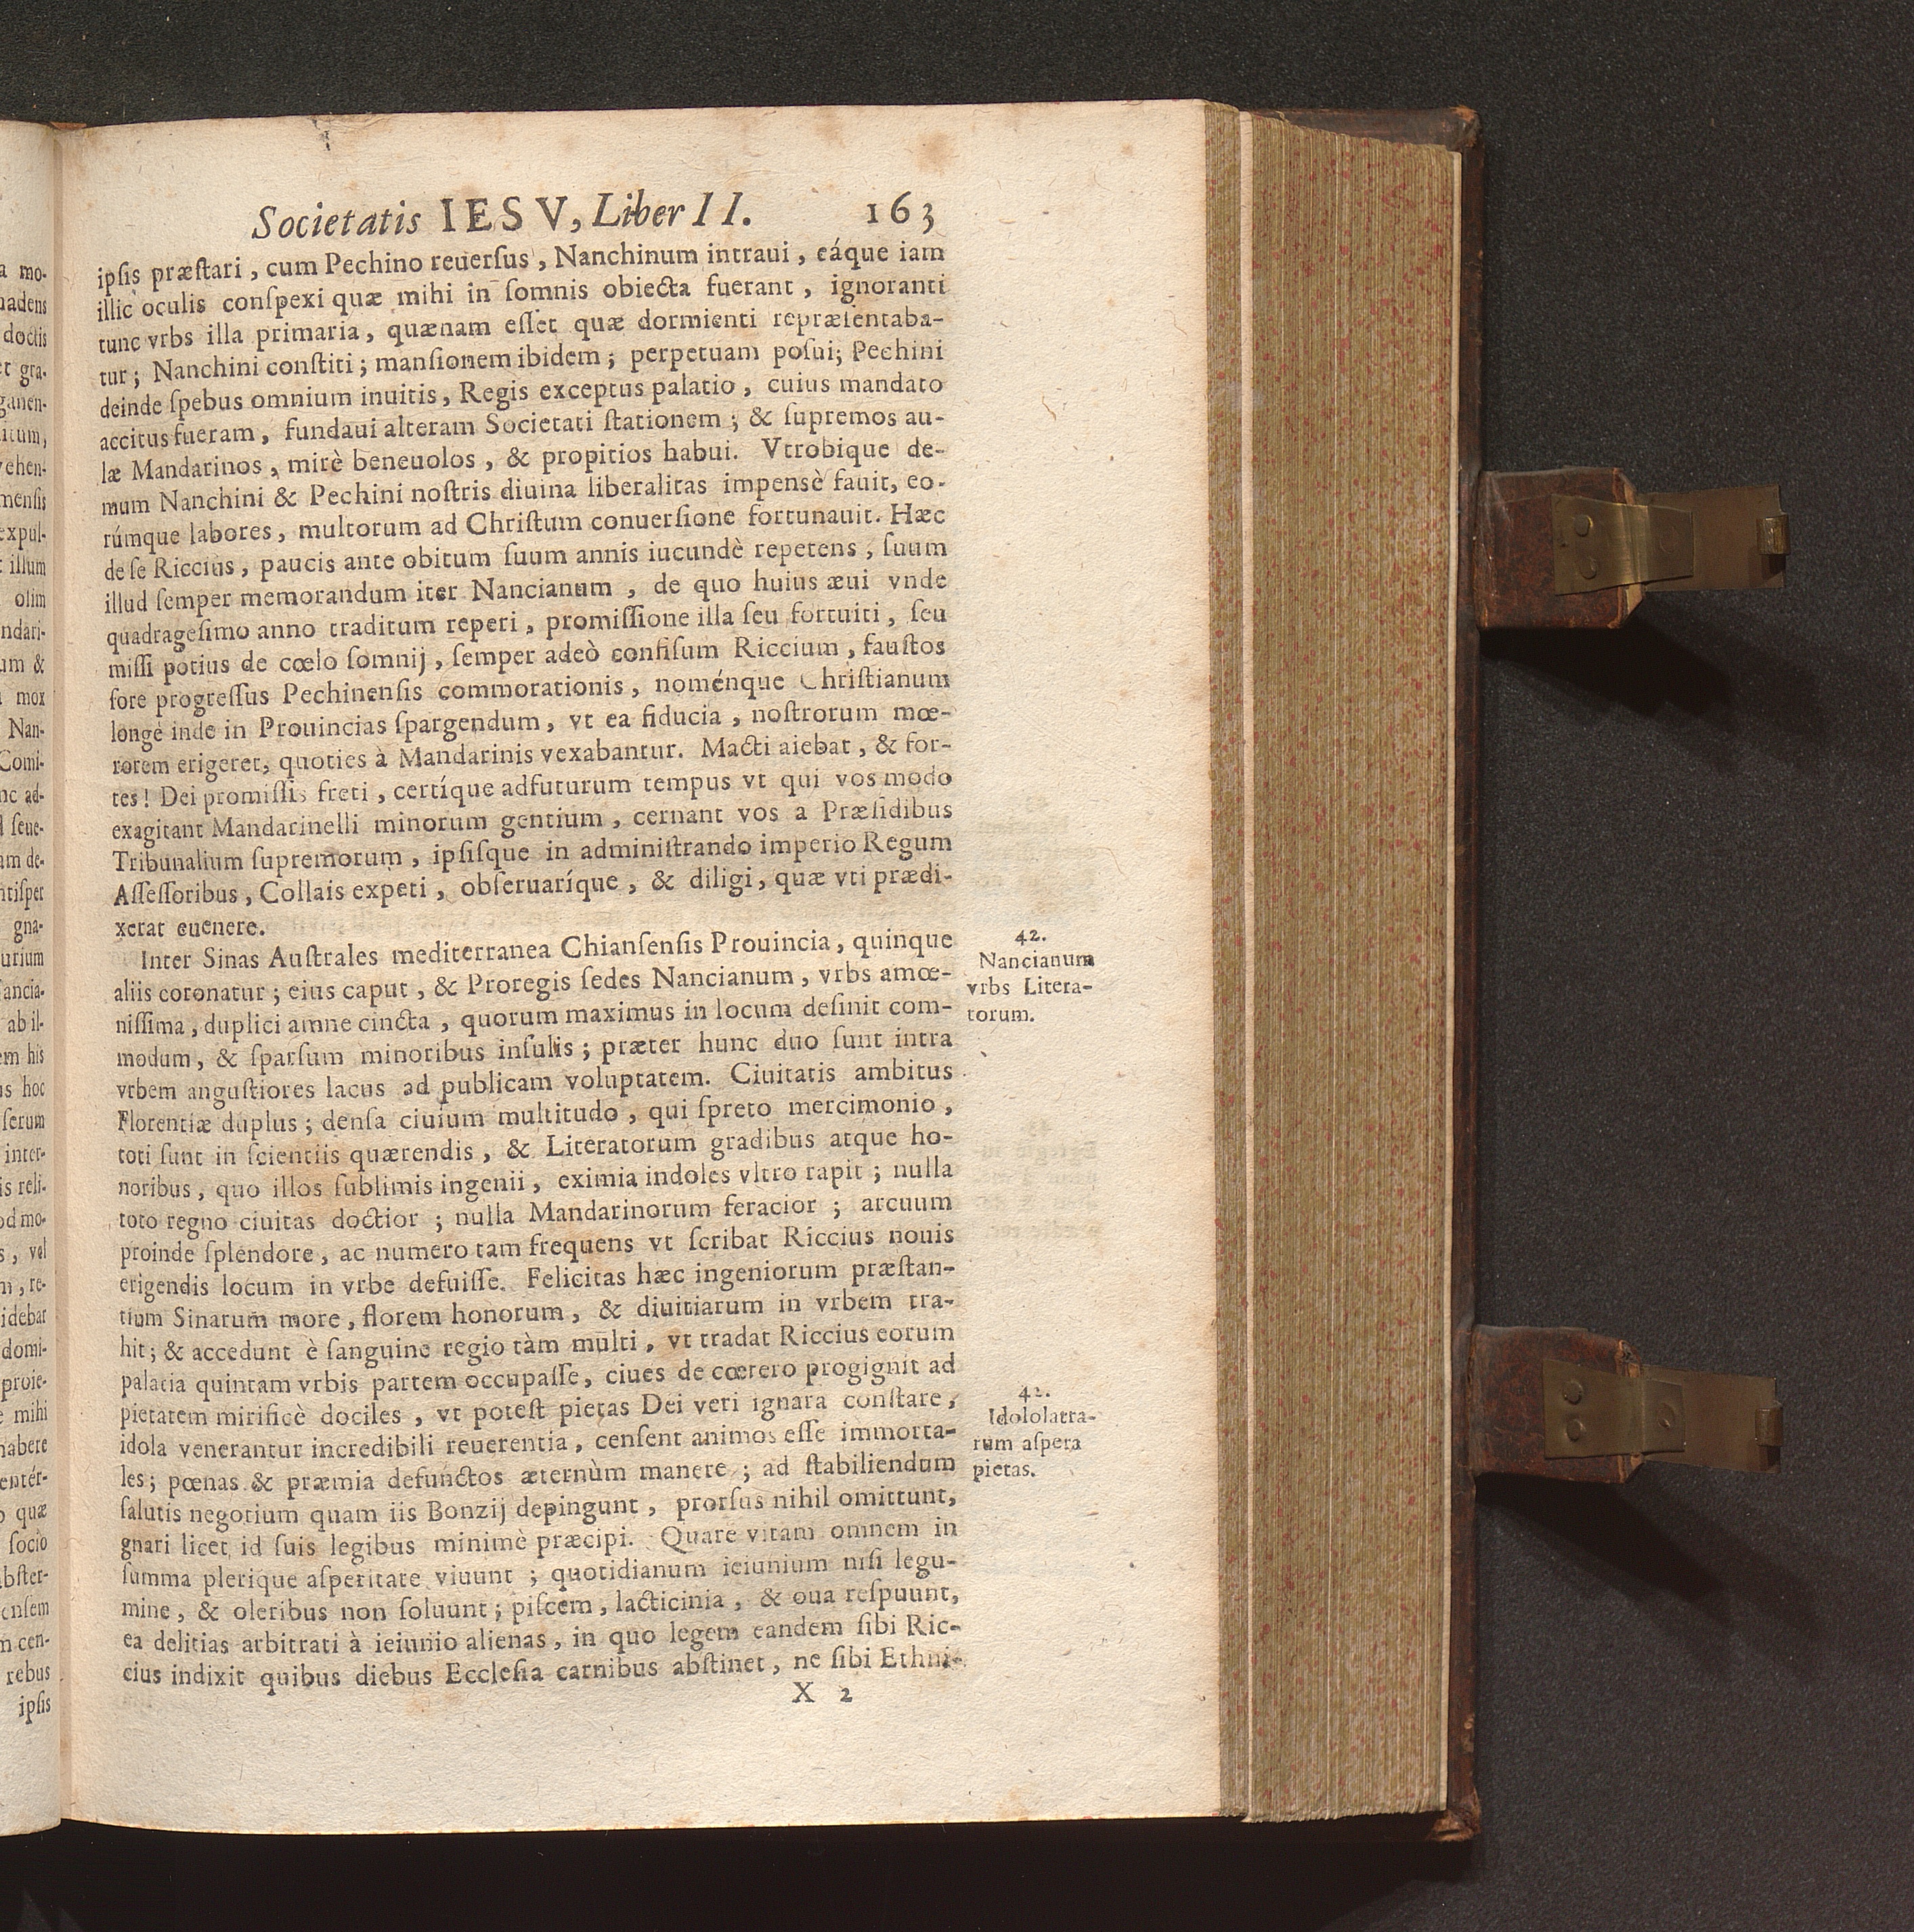 Societatis IESV, Liber II. 163
ipſis præſtari, cum Pechino reuerſus, Nanchinum intraui, eáque iam
illic oculis conſpexi quæ mihi in ſomnis obiecta fuerant, ignoranti
tunc vrbs illa primaria, quænam eſſet quæ dormienti repræſentaba-
tur; Nanchini conſtiti; manſionem ibidem; perpetuam poſui; Pechini
deinde ſpebus omnium inuitis, Regis exceptus palatio, cuius mandato
accitus fueram, fundaui alteram Societati ſtationem; & ſupremos au-
læ Mandarinos, mirè beneuolos, & propitios habui. Vtrobique de-
mum Nanchini & Pechini noſtris diuina liberalitas impensè fauit, eo-
rúmque labores, multorum ad Chriſtum conuerſione fortunauit. Hæc
de ſe Riccius, paucis ante obitum ſuum annis iucundè repetens, ſuum
illud ſemper memorandum iter Nancianum, de quo huius æui vnde
quadrageſimo anno traditum reperi, promiſſione illa ſeu fortuiti, ſeu
miſſi potius de cœlo ſomnij, ſemper adeò confiſum Riccium, fauſtos
fore progreſſus Pechinenſis commorationis, noménque Chriſtianum
longè inde in Prouincias ſpargendum, vt ea fiducia, noſtrorum mœ-
rorem erigeret, quoties à Mandarinis vexabantur. Macti aiebat, & for-
tes! Dei promiſſis freti, certíque adfuturum tempus vt qui vos modo
exagitant Mandarinelli minorum gentium, cernant vos a Præſidibus
Tribunalium ſupremorum, ipſiſque in adminiſtrando imperio Regum
Aſſeſſoribus, Collais expeti, obſeruaríque, & diligi, quæ vti prædi-
xerat euenere.
Inter Sinas Auſtrales mediterranea Chianſenſis Prouincia, quinque
aliis coronatur; eius caput, & Proregis ſedes Nancianum, vrbs amœ-
niſſima, duplici amne cincta, quorum maximus in locum deſinit com-
modum, & ſparſum minoribus inſulis; præter hunc duo ſunt intra
vrbem anguſtiores lacus ad publicam voluptatem. Ciuitatis ambitus
Florentiæ duplus; denſa ciuium multitudo, qui ſpreto mercimonio,
toti ſunt in ſcientiis quærendis, & Literatorum gradibus atque ho-
noribus, quo illos ſublimis ingenii, eximia indoles vltro rapit; nulla
toto regno ciuitas doctior; nulla Mandarinorum feracior; arcuum
proinde ſplendore, ac numero tam frequens vt ſcribat Riccius nouis
erigendis locum in vrbe defuiſſe. Felicitas hæc ingeniorum præſtan-
tium Sinarum more, florem honorum, & diuitiarum in vrbem tra-
hit; & accedunt è ſanguine regio tàm multi, vt tradat Riccius eorum
palatia quintam vrbis partem occupaſſe, ciues de cœtero progignit ad
pietatem mirificè dociles, vt poteſt pietas Dei veri ignara conſtare,
idola venerantur incredibili reuerentia, cenſent animos eſſe immorta-
les; pœnas & præmia defunctos æternùm manere; ad ſtabiliendum
ſalutis negotium quam iis Bonzij depingunt, prorſus nihil omittunt,
gnari licet id ſuis legibus minimè præcipi. Quare vitam omnem in
ſumma plerique aſperitate viuunt; quotidianum ieiunium niſi legu-
mine, & oleribus non ſoluunt; piſcem, lacticinia, & oua reſpuunt,
ea delitias arbitrati à ieiunio alienas, in quo legem eandem ſibi Ric-
cius indixit quibus diebus Eccleſia carnibus abſtinet, ne ſibi Ethni-
X 2
42.
Nancianum
vrbs Litera-
torum.
42.
Idololatra-
rum aſpera
pietas.